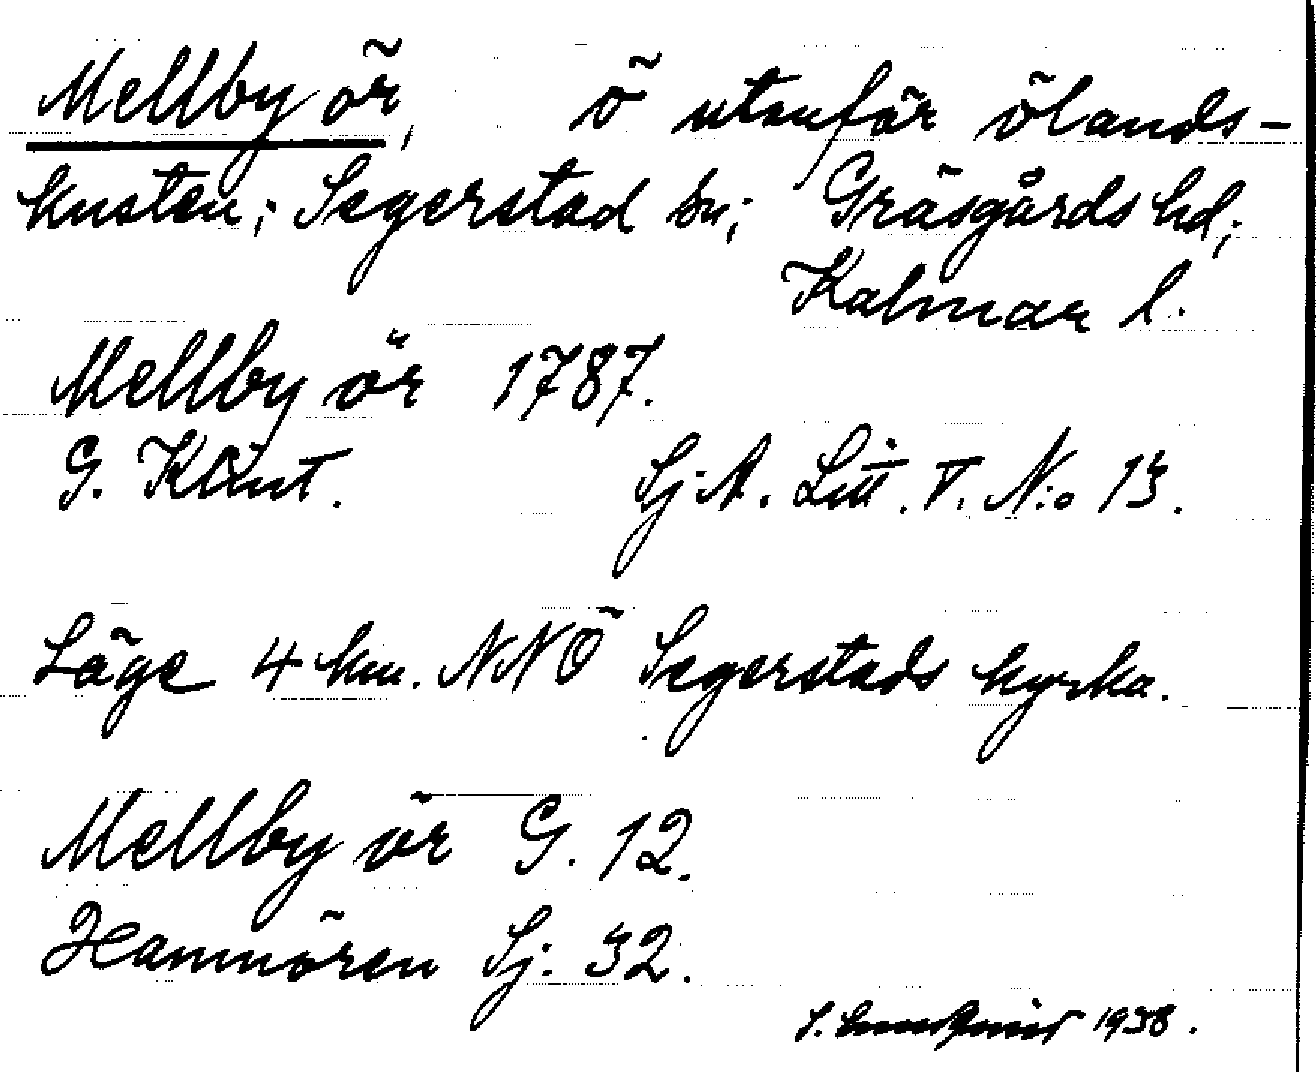 Mellby ör, ö utanför ölands-
kusten; Segerstad sn; Gräsgårds hd;
Kalmar l.
Mellby ör 1787.
G. Klint. Sj. A. Litt. V. N:o 13.
Läge 4 km. NNÖ Segerstads kyrka.
Mellby ör G. 12.
Hamnören Sj. 32.
1938.